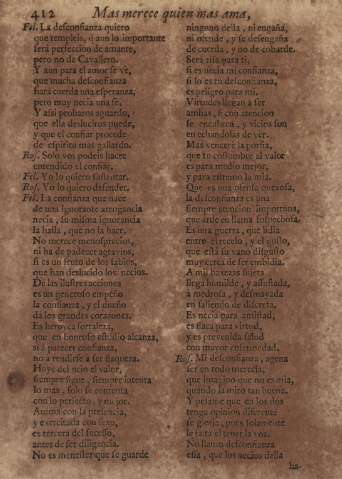 412 Mas merece quien mas ama,
Fel. La desconfiança quiero
que templeis, q aun lo importante
será perfeccion de amante,
pero no de Cavallero.
Y aun para el amor se ve,
que mucha desconfiança
hará cuerda una esperança,
pero muy necia una fe.
Y assi probaros aguardo,
que ella desluciros puede,
y que el confiar procede
de espiritu mas gallardo.
Ros. Solo vos podeis hacer
entendido el confiar.
Fel. Yo lo quiero sustentar.
Ros. Yo lo quiero defender.
Fel. La confiança que nace
de una ignorante arrogancia
necia, su misma ignorancia
la halla, que no la hace.
No merece menosprecios,
ni ha de padecer agravios,
si es un fruto de los sabios,
que han deslucido los necios.
De las ilustres acciones
es un generoso empeño
la confiança, y el dueño
da los grandes coraçones.
Es heroyca fortaleza,
que en honroso estudio alcança,
si à parecer confiança,
no a rendirse à ser flaqueza.
Huye del necio el valor,
siempre sigue, siempre intenta
lo mas, solo se contenta
con lo perfecto, y mejor.
Anima con la presencia,
y exercitada con
es tercera del sucesso,
antes de ser diligencia.
No es menester que se guarde
ninguno della, ni engaña,
ni ofende, y se desengaña
de cuerda, y no de cobarde.
Será risa para ti,
si es necia mi confiança,
si lo es tu desconfiança,
es peligro para mi.
Virtudes llegan à ser
ambas, si con atencion
se encubren, y vicios son
en echandolas de ver.
Mas venceré la porfia,
que tu costumbre al valor
es para modo mejor,
y para estremo la mia.
Que es una ofensa quexosa,
la desconfiança es una
siempre atencion importuna,
que arde en llama sospechosa.
Es una guerra, que lidia
entre el rezelo, y el gusto,
que está tu vano disgusto
muy cerca de ser embidia.
A mil baxezas sujeta
llega humilde, y assustada,
à medrosa, y desmayada
en saliendo de discreta.
Es necia para amistad,
es flaca para virtud,
y es prevenida salud
con mayor enfermedad.
Ros. Mi desconfiança, agena
ser en todo merecia,
que imagino que no es mia,
quando la miro tan buena.
Y pesame que en los dos
tenga opinion diferente
se gloria, pues solamente
le falta el tener la voz.
No llamo desconfiança
essa, que los necios della
ha-